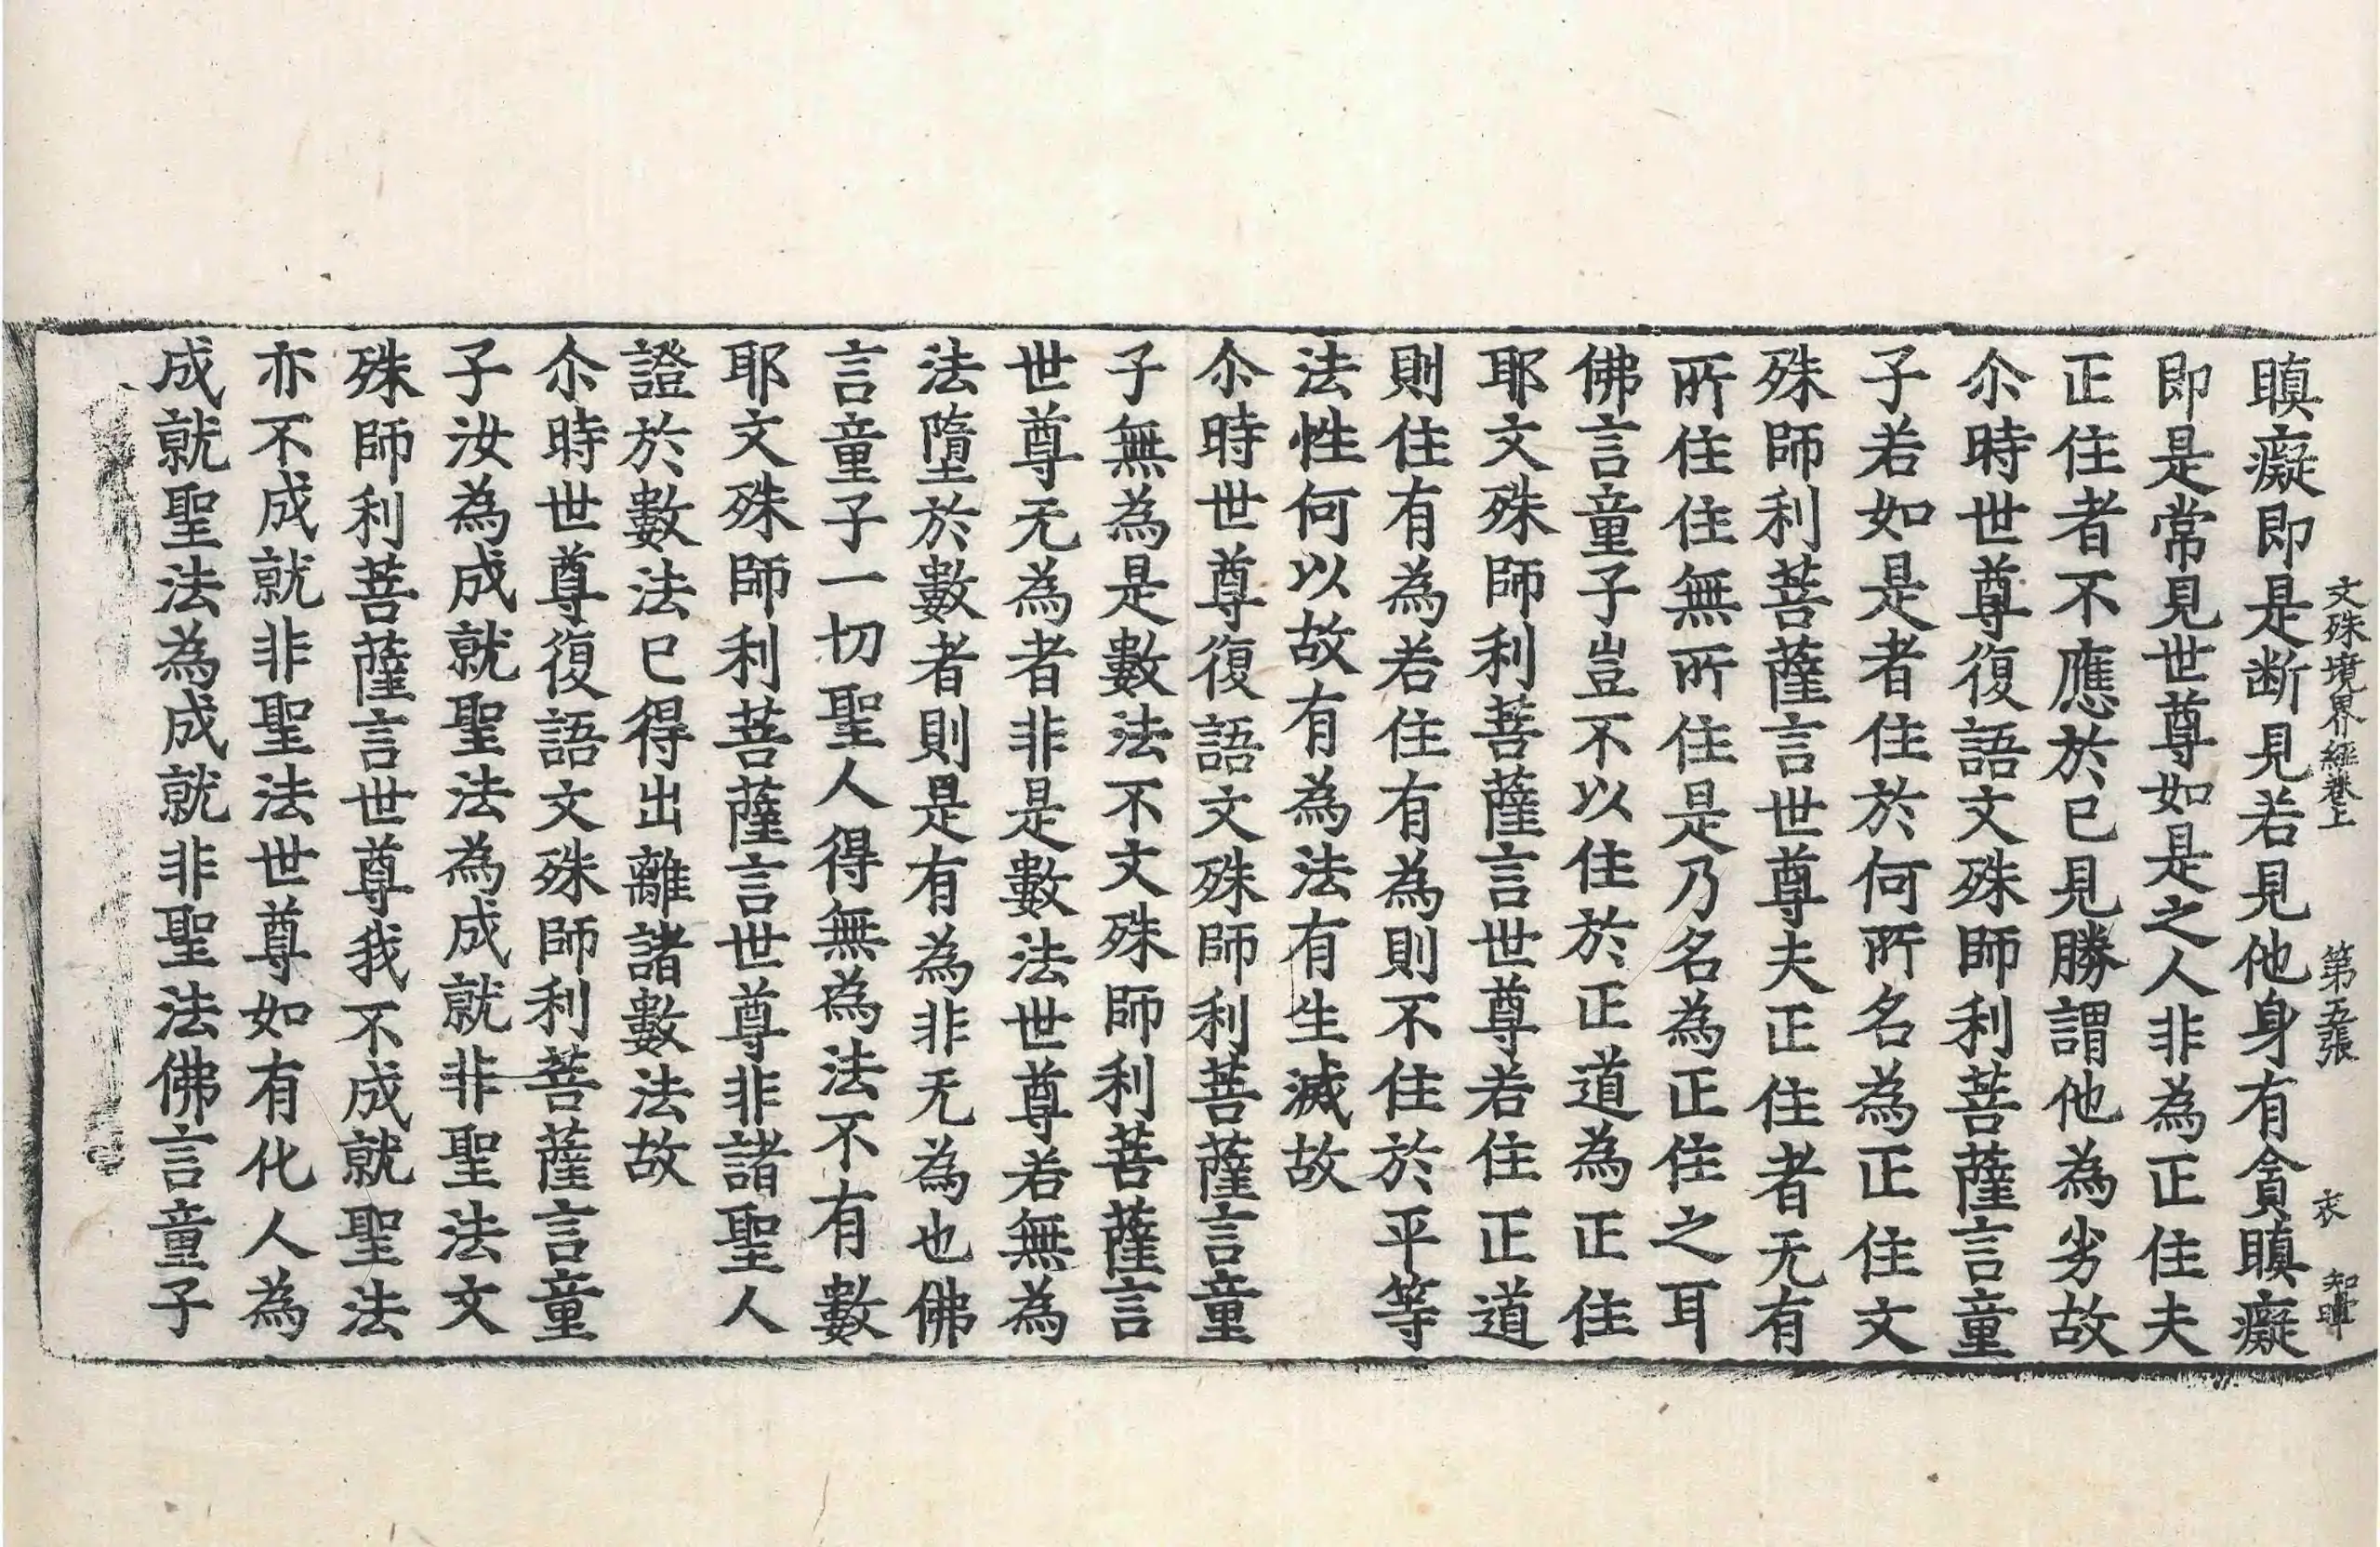 文殊境界經卷上 第五張 衣 知暉
瞋癡即是断見若見他身有貪瞋癡
即是常見世尊如是之人非為正住夫
正住者不應於已見勝謂他為劣故
尒時世尊復語文殊師利菩薩言童
子若如是者住於何所名為正住文
殊師利菩薩言世尊夫正住者无有
所住住無所住是乃名為正住之耳
佛言童子豈不以住於正道為正住
耶文殊師利菩薩言世尊若住正道
則住有為若住有為則不住於平等
法性何以故有為法有生滅故
尒時世尊復語文殊師利菩薩言童
子無為是數法不文殊師利菩薩言
世尊无為者非是數法世尊若無為
法墮於數者則是有為非无為也佛
言童子一切聖人得無為法不有數
耶文殊師利菩薩言世尊非諸聖人
證於數法已得出離諸數法故
尒時世尊復語文殊師利菩薩言童
子汝為成就聖法為成就非聖法文
殊師利菩薩言世尊我不成就聖法
亦不成就非聖法世尊如有化人為
成就聖法為成就非聖法佛言童子